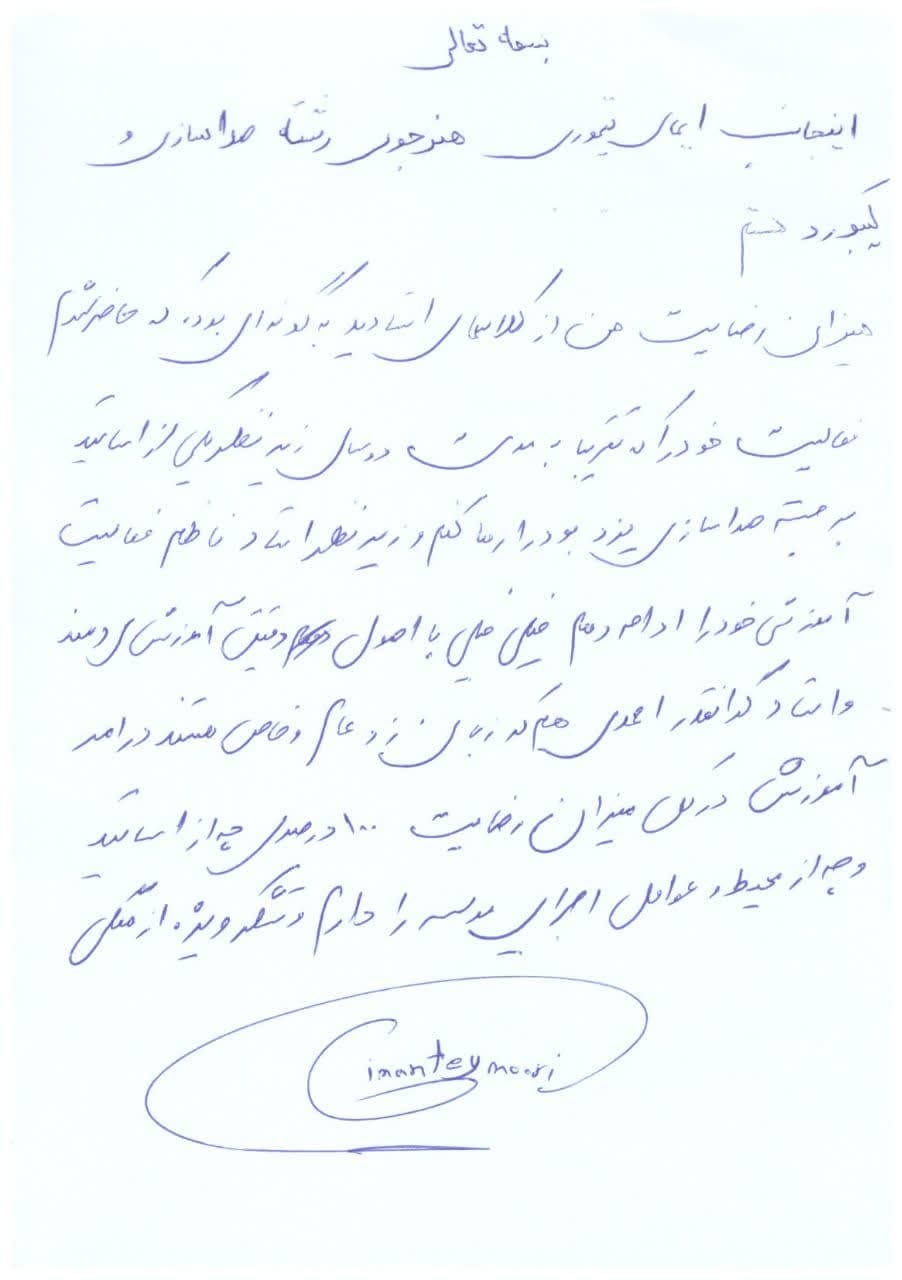 بسمه تعالی
اینجانب ایمان تیموری هنرجوی رشته صداسازی و
کیبورد هستم
میزان رضایت من از کلاسهای استادید به گونه‌ای بود که حاضر شدم
فعالیت خود را که تقریبا به مدت دو سال زیر نظر یکی از اساتید
برجسته صداسازی یزد بود را رها کنم و زیر نظر استاد ناظم فعالیت
آموزشی خود را ادامه دهم خیلی خیلی با اصول دقیق آموزش می‌دهند
و استاد گرانقدر احمدی هم که زبان زد عام و خاص هستند در امر
آموزش در کل میزان رضایت ۱۰۰ درصدی چه از اساتید
و چه از محیط و عوامل اجرایی مدرسه را دارم و تشکر ویژه از همگی
imanteymoori